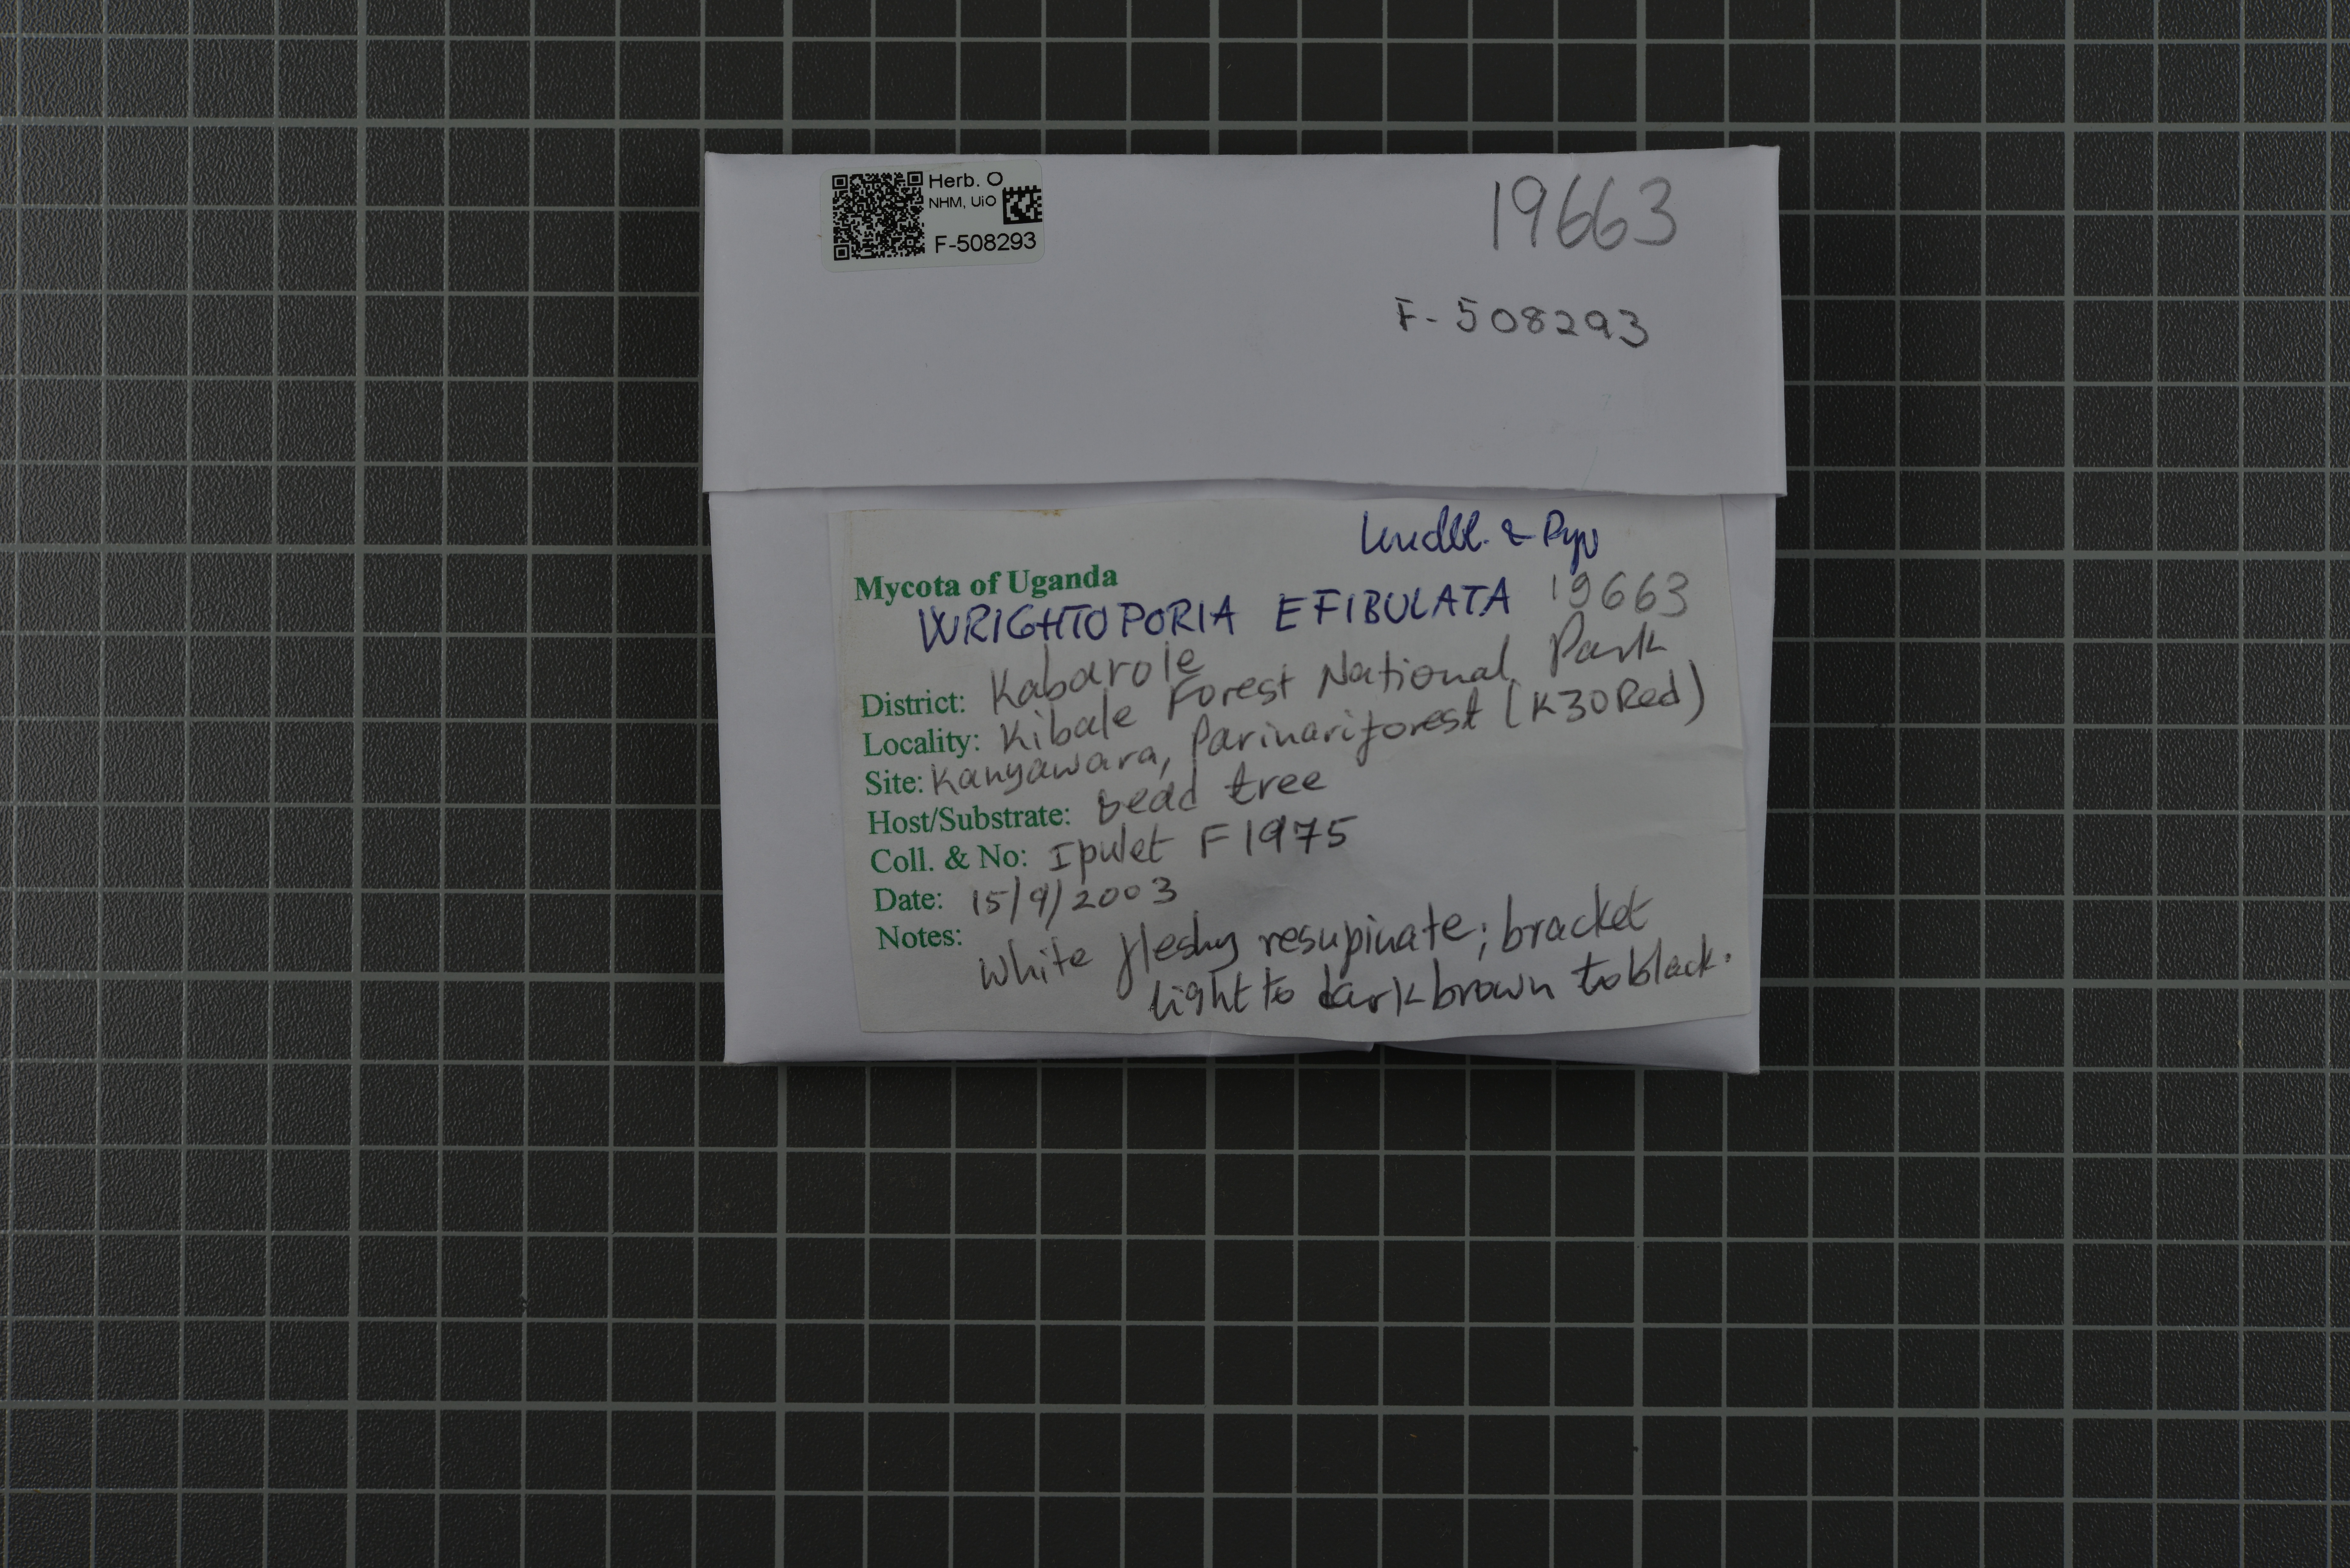 Herb. O
NHM, UiO
F-508293
19663
F-508293
& Ryv
Mycota of Uganda
WRIGHTOPORIA EFIBULATA 19663
District: Kabarole
Locality: Kibale Forest National Park
Site: Kanyawara, Parinari forest (K30Red)
Host/Substrate: Dead tree
Coll. & No: Ipulet F1975
Date: 15/9/2003
Notes: White fleshy resupinate; bracket
light to dark brown to black.